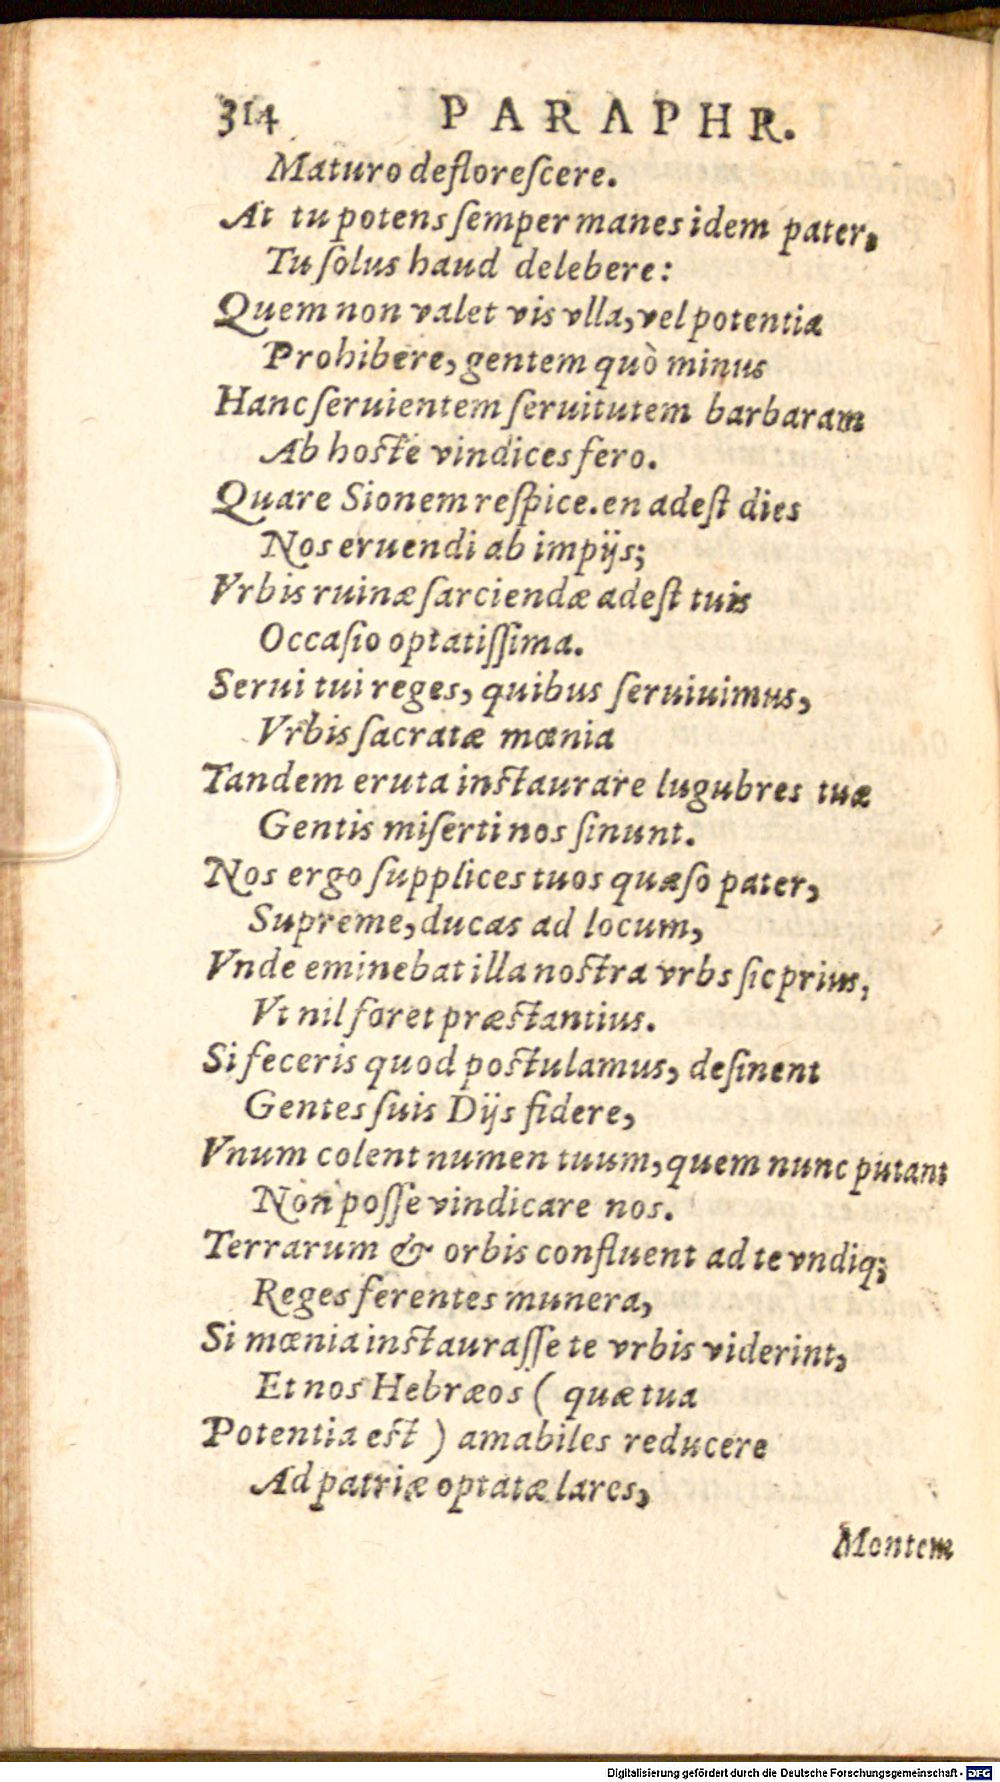 314 PARAPHR.
Maturo defloreſcere.
At tu potens ſemper manes idem pater,
Tu ſolus haud delebere:
Quem non valet vis vlla, vel potentia
Prohibere, gentem quò minus
Hanc ſeruientem ſeruitutem barbaram
Ab hoſte vindices fero.
Quare Sionem reſpice. en adeſt dies
Nos eruendi ab impijs;
Vrbis ruinæ ſarciendæ adeſt tuis
Occaſio optatiſſima.
Serui tui reges, quibus ſeruiuimus,
Vrbis ſacratæ mœnia
Tandem eruta inſtaurare lugubres tuæ
Gentis miſerti nos ſinunt.
Nos ergo ſupplices tuos quæſo pater,
Supreme, ducas ad locum,
Vnde eminebat illa noſtra vrbs ſic prius,
Vt nil foret præſtantius.
Si feceris quod poſtulamus, deſinent
Gentes ſuis Dijs fidere,
Vnum colent numen tuum, quem nunc putant
Non poſſe vindicare nos.
Terrarum & orbis confluent ad te vndiq;
Reges ferentes munera,
Si mœnia inſtauraſſe te vrbis viderint,
Et nos Hebræos ( quæ tua
Potentia eſt ) amabiles reducere
Ad patriæ optatæ lares,
Montem
Digitalisierung gefördert durch die Deutsche Forschungsgemeinschaft - DFG